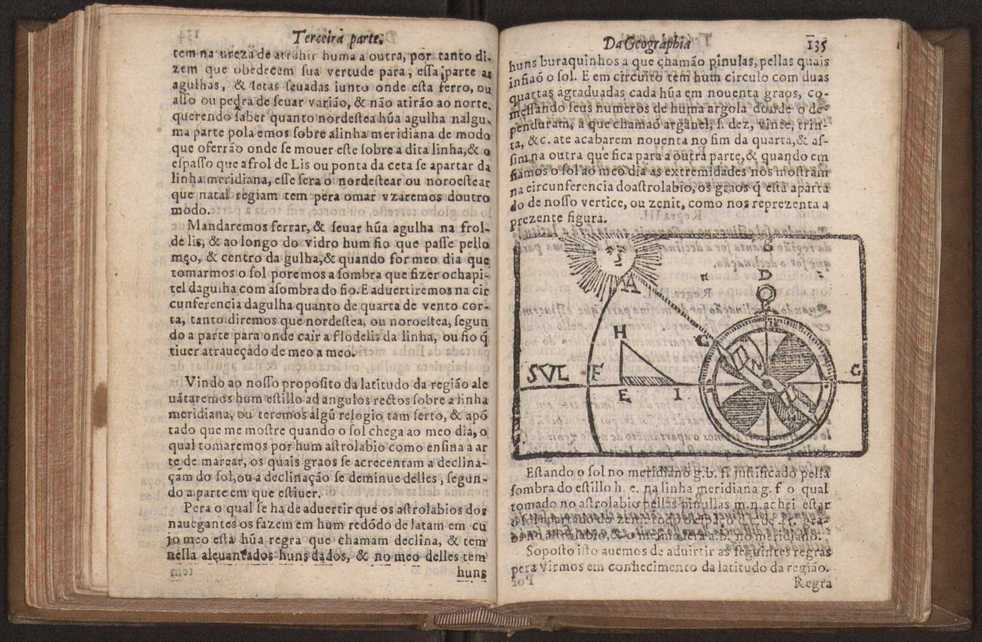 Terceira parte.
tem na ureza de atrahir huma a outra, por tanto di-
zem que obedecem sua vertude para, essa parte as
agulhas, & setas seuadas iunto onde esta ferro, ou
asso ou pedra de seuar varião, & não atirão ao norte.
querendo saber quanto nordestea hũa agulha nalgu-
ma parte pola emos sobre alinha meridiana de modo
que oferrão onde se mouer este sobre a dita linha, & o
espasso que afrol de Lis ou ponta da ceta se apartar da
linha meridiana, esse sera o nordestear ou noroestear
que natal regiam tem pera omar vzaremos doutro
modo.
Mandaremos ferrar, & seuar hũa agulha na frol-
de lis, & ao longo do vidro hum fio que passe pello
meo, & centro da gulha, & quando for meo dia que
tomarmos o sol poremos a sombra que fizer ochapi-
tel dagulha com asombra do fio. E aduertiremos na cir
cunferencia dagulha quanto de quarta de vento cor-
ta, tanto diremos que nordestea, ou noroestea, segun
do a parte para onde cair a flodelis da linha, ou fio q̃
tiuer atraueçado de meo a meo.
Vindo ao nosso proposito da latitudo da região ale
uãtaremos hum estillo ad angulos rectos sobre a linha
meridiana, ou teremos algũ relogio tam serto, & apõ
tado que me mostre quando o sol chega ao meo dia, o
qual tomaremos por hum astrolabio como ensina a ar
te de marear, os quais graos se acrecentam a declina-
çam do sol, ou a declinação se deminue delles, segun-
do a parte em que estiuer.
Pera o qual se ha de aduertir que os astrolabios dos
nauegantes os fazem em hum redõdo de latam em cu
jo meo esta hũa regra que chamam declina, & tem
nella aleuantados huns dados, & no meo delles tem
huns
Da Geographia 135
huns buraquinhos a que chamão pinulas, pellas quais
infiaõ o sol. E em circuito tem hum circulo com duas
quartas agraduadas cada hũa em nouenta graos, co-
messando seus numeros de huma argola donde o de-
penduram, a que chamaõ arganel, s. dez, vinte, trin-
ta, & c. ate acabarem nouenta no fim da quarta, & as-
sim na outra que fica para a outra parte, & quando em
fiamos o sol ao meo dia as extremidades nos mostram
na circunferencia doastrolabio, os graos q̃ está aparta
do de nosso vertice, ou zenit, como nos reprezenta a
prezente figura.
B
D
A
H
C
M
N
SVL F
G
E I
Estando o sol no meridiano g. b. f. justificado pella
sombra do estillo h. e. na linha meridiana g. f o qual
tomado no astrolabio pellas pinullas m. n. achei estar
meridiano.
Soposto isto auemos de aduirtir as seguintes regras
pera virmos em conhecimento da latitudo da região.
Regra